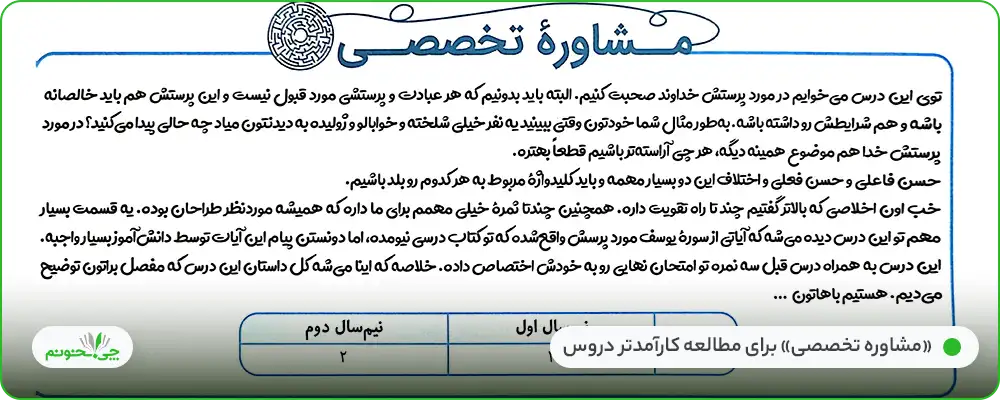 مشاورهٔ تخصصی
توی این درس می‌خوایم در مورد پرستش خداوند صحبت کنیم. البته باید بدونیم که هر عبادت و پرستشی مورد قبول نیست و این پرستش هم باید خالصانه
باشه و هم شرایطش رو داشته باشه. به‌طور مثال شما خودتون وقتی ببینید یه نفر خیلی شلخته و خوابالو و ژولیده به دیدنتون میاد چه حالی پیدا می‌کنید؟ در مورد
پرستش خدا هم موضوع همینه دیگه، هر چی آراسته‌تر باشیم قطعاً بهتره.
حسن فاعلی و حسن فعلی و اختلاف این دو بسیار مهمه و باید کلیدواژهٔ مربوط به هر کدوم رو بلد باشیم.
خب اون اخلاصی که بالاتر گفتیم چند تا راه تقویت داره. همچنین چندتا ثمرهٔ خیلی مهمم برای ما داره که همیشه موردنظر طراحان بوده. یه قسمت بسیار
مهم تو این درس دیده می‌شه که آیاتی از سورهٔ یوسف مورد پرسش واقع‌شده که تو کتاب درسی نیومده، اما دونستن پیام این آیات توسط دانش‌آموز بسیار واجبه.
این درس به همراه درس قبل سه نمره تو امتحان نهایی رو به خودش اختصاص داده. خلاصه که اینا می‌شه کل داستان این درس که مفصل براتون توضیح
می‌دیم. هستیم باهاتون ...
سال اول نیم‌سال دوم
۱ ۲
«مشاوره تخصصی» برای مطالعه کارآمدتر دروس
چی بخونم